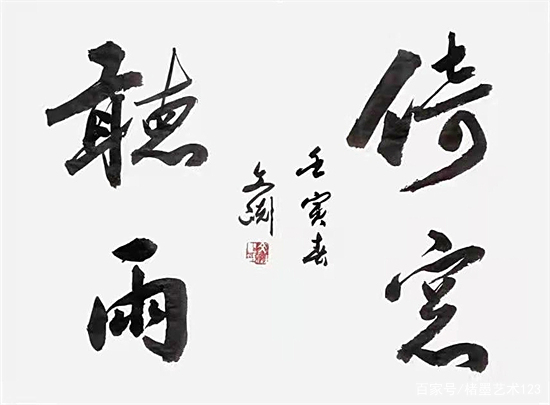 倚窓
聽雨
壬寅春
文
百家号/格墨艺术123